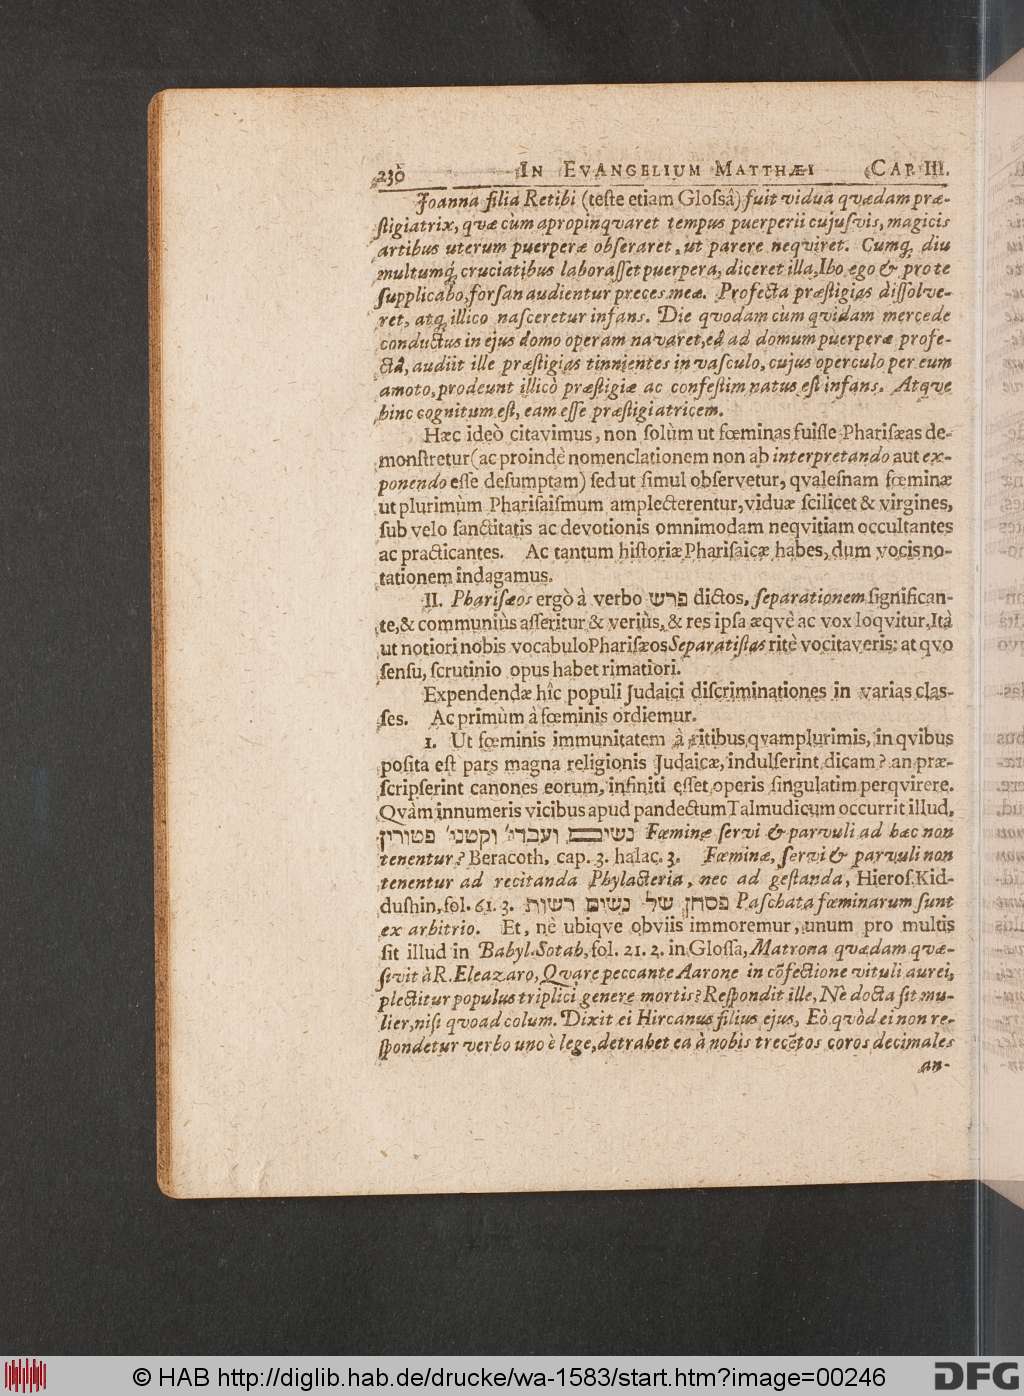 230 IN EVANGELIUM MATTHÆI CAP. III.
Joanna filia Retibi (teſte etiam Gloſsâ) fuit vidua qvædam præ-
ſtigiatrix, qvæ cùm apropinqvaret tempus puerperii cujuſvis, magicis
artibus uterum puerperæ obſeraret, ut parere neqviret. Cumq́; diu
multumq́; cruciatibus laboraſſet puerpera, diceret illa, Ibo ego & pro te
ſupplicabo, forſan audientur preces meæ. Profecta præſtigias diſſolve-
ret, atq́; illico naſceretur infans. Die qvodam cùm qvidam mercede
conductus in ejus domo operam navaret, eâ ad domum puerperæ profe-
ctâ, audiit ille præſtigias tinnientes in vaſculo, cujus operculo per eum
amoto, prodeunt illicò præſtigiæ ac confeſtim natus eſt infans. Atqve
hinc cognitum eſt, eam eſſe præſtigiatricem.
Hæc ideò citavimus, non ſolùm ut fœminas fuiſſe Phariſæas de-
monſtretur (ac proindè nomenclationem non ab interpretando aut ex-
ponendo eſſe deſumptam) ſed ut ſimul obſervetur, qvaleſnam fœminæ
ut plurimùm Phariſaiſmum amplecterentur, viduæ ſcilicet & virgines,
ſub velo ſanctitatis ac devotionis omnimodam neqvitiam occultantes
ac practicantes. Ac tantum hiſtoriæ Phariſaicæ habes, dum vocis no-
tationem indagamus.
II. Phariſæos ergò à verbo פרש dictos, ſeparationem ſignifican-
te, & communiùs aſſeritur & veriùs, & res ipſa æqvè ac vox loqvitur. Ità
ut notiori nobis vocabulo Phariſæos Separatiſtas ritè vocitaveris: at qvo
ſenſu, ſcrutinio opus habet rimatiori.
Expendendæ hîc populi Judaici diſcriminationes in varias claſ-
ſes. Ac primùm à fœminis ordiemur.
1. Ut fœminis immunitatem à ritibus qvamplurimis, in qvibus
poſita eſt pars magna religionis Judaicæ, indulſerint dicam? an præ-
ſcripſerint canones eorum, infiniti eſſet operis ſingulatim perqvirere.
Qvàm innumeris vicibus apud pandectum Talmudicum occurrit illud,
נשים ועבדי׳ וקטני׳ פטורין Fœminæ ſervi & parvuli ad hæc non
tenentur? Beracoth, cap. 3. halac. 3. Fœminæ, ſervi & parvuli non
tenentur ad recitanda Phylacteria, nec ad geſtanda, Hieroſ. Kid-
duſhin, fol. 61. 3. פסחן של נשים רשות Paſchata fœminarum ſunt
ex arbitrio. Et, nè ubiqve obviis immoremur, unum pro multis
ſit illud in Babyl. Sotah, fol. 21. 2. in Gloſſa, Matrona qvædam qvæ-
ſivit à R. Eleazaro, Qvare peccante Aarone in cōfectione vituli aurei,
plectitur populus triplici genere mortis? Reſpondit ille, Nè docta ſit mu-
lier, niſi qvoad colum. Dixit ei Hircanus filius ejus, Eò qvòd ei non re-
ſpondetur verbo uno è lege, detrahet ea à nobis trecētos coros decimales
an-
© HAB http://diglib.hab.de/drucke/wa-1583/start.htm?image=00246
DFG